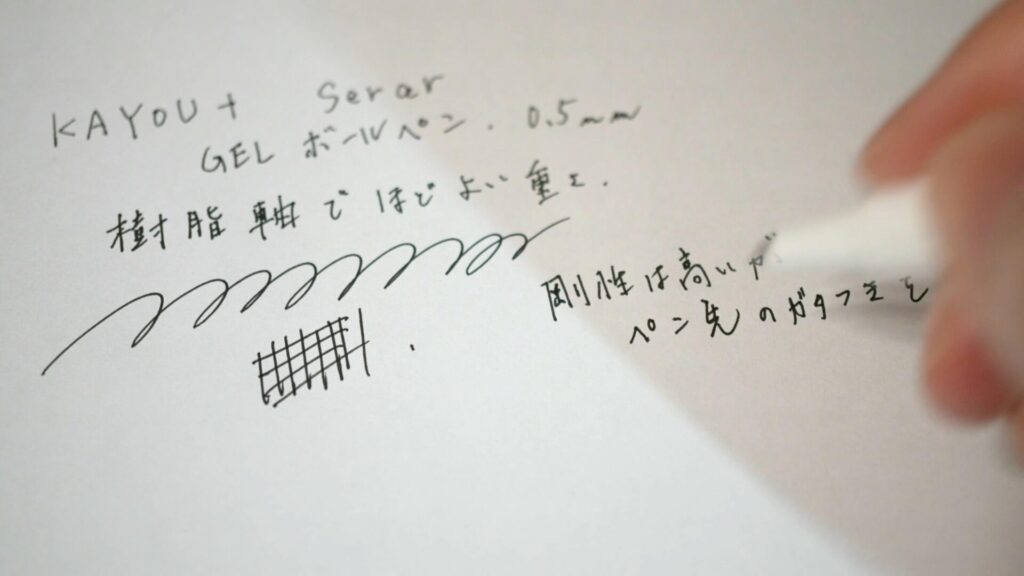 KAYOU+ Serar
GEL ボールペン. 0.5mm
樹脂軸でほどよい重さ.
剛性は高いが
ペン先のガタつきを